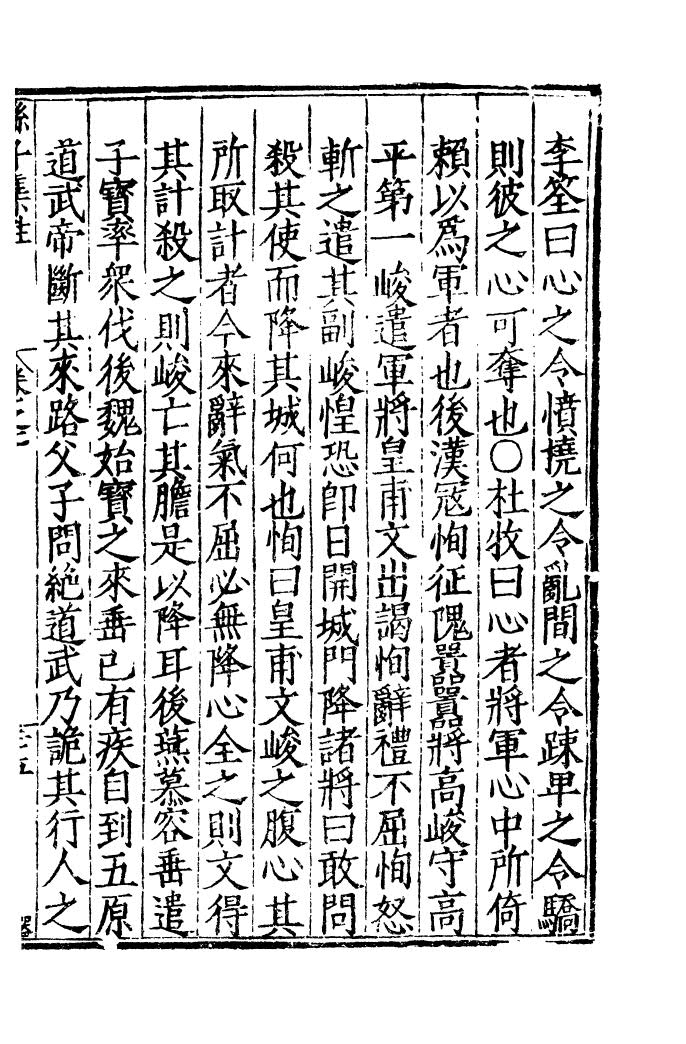 李筌曰心之令憤撓之令亂間之令踈卑之令驕
則彼之心可奪也○杜牧曰心者將軍心中所倚
頼以爲軍者也後漢冦恂征隗囂囂將高峻守高
平第一峻遣軍將皇甫文出謁恂辭禮不屈恂怒
斬之遣其副峻惶恐卽日開城門降諸將曰敢問
殺其使而降其城何也恂曰皇甫文峻之腹心其
所取計者今來辭氣不屈必無降心全之則文得
其計殺之則峻亡其膽是以降耳後燕慕容垂遣
子寶率衆伐後魏始寶之來垂已有疾自到五原
道武帝斷其來路父子問絶道武乃詭其行人之